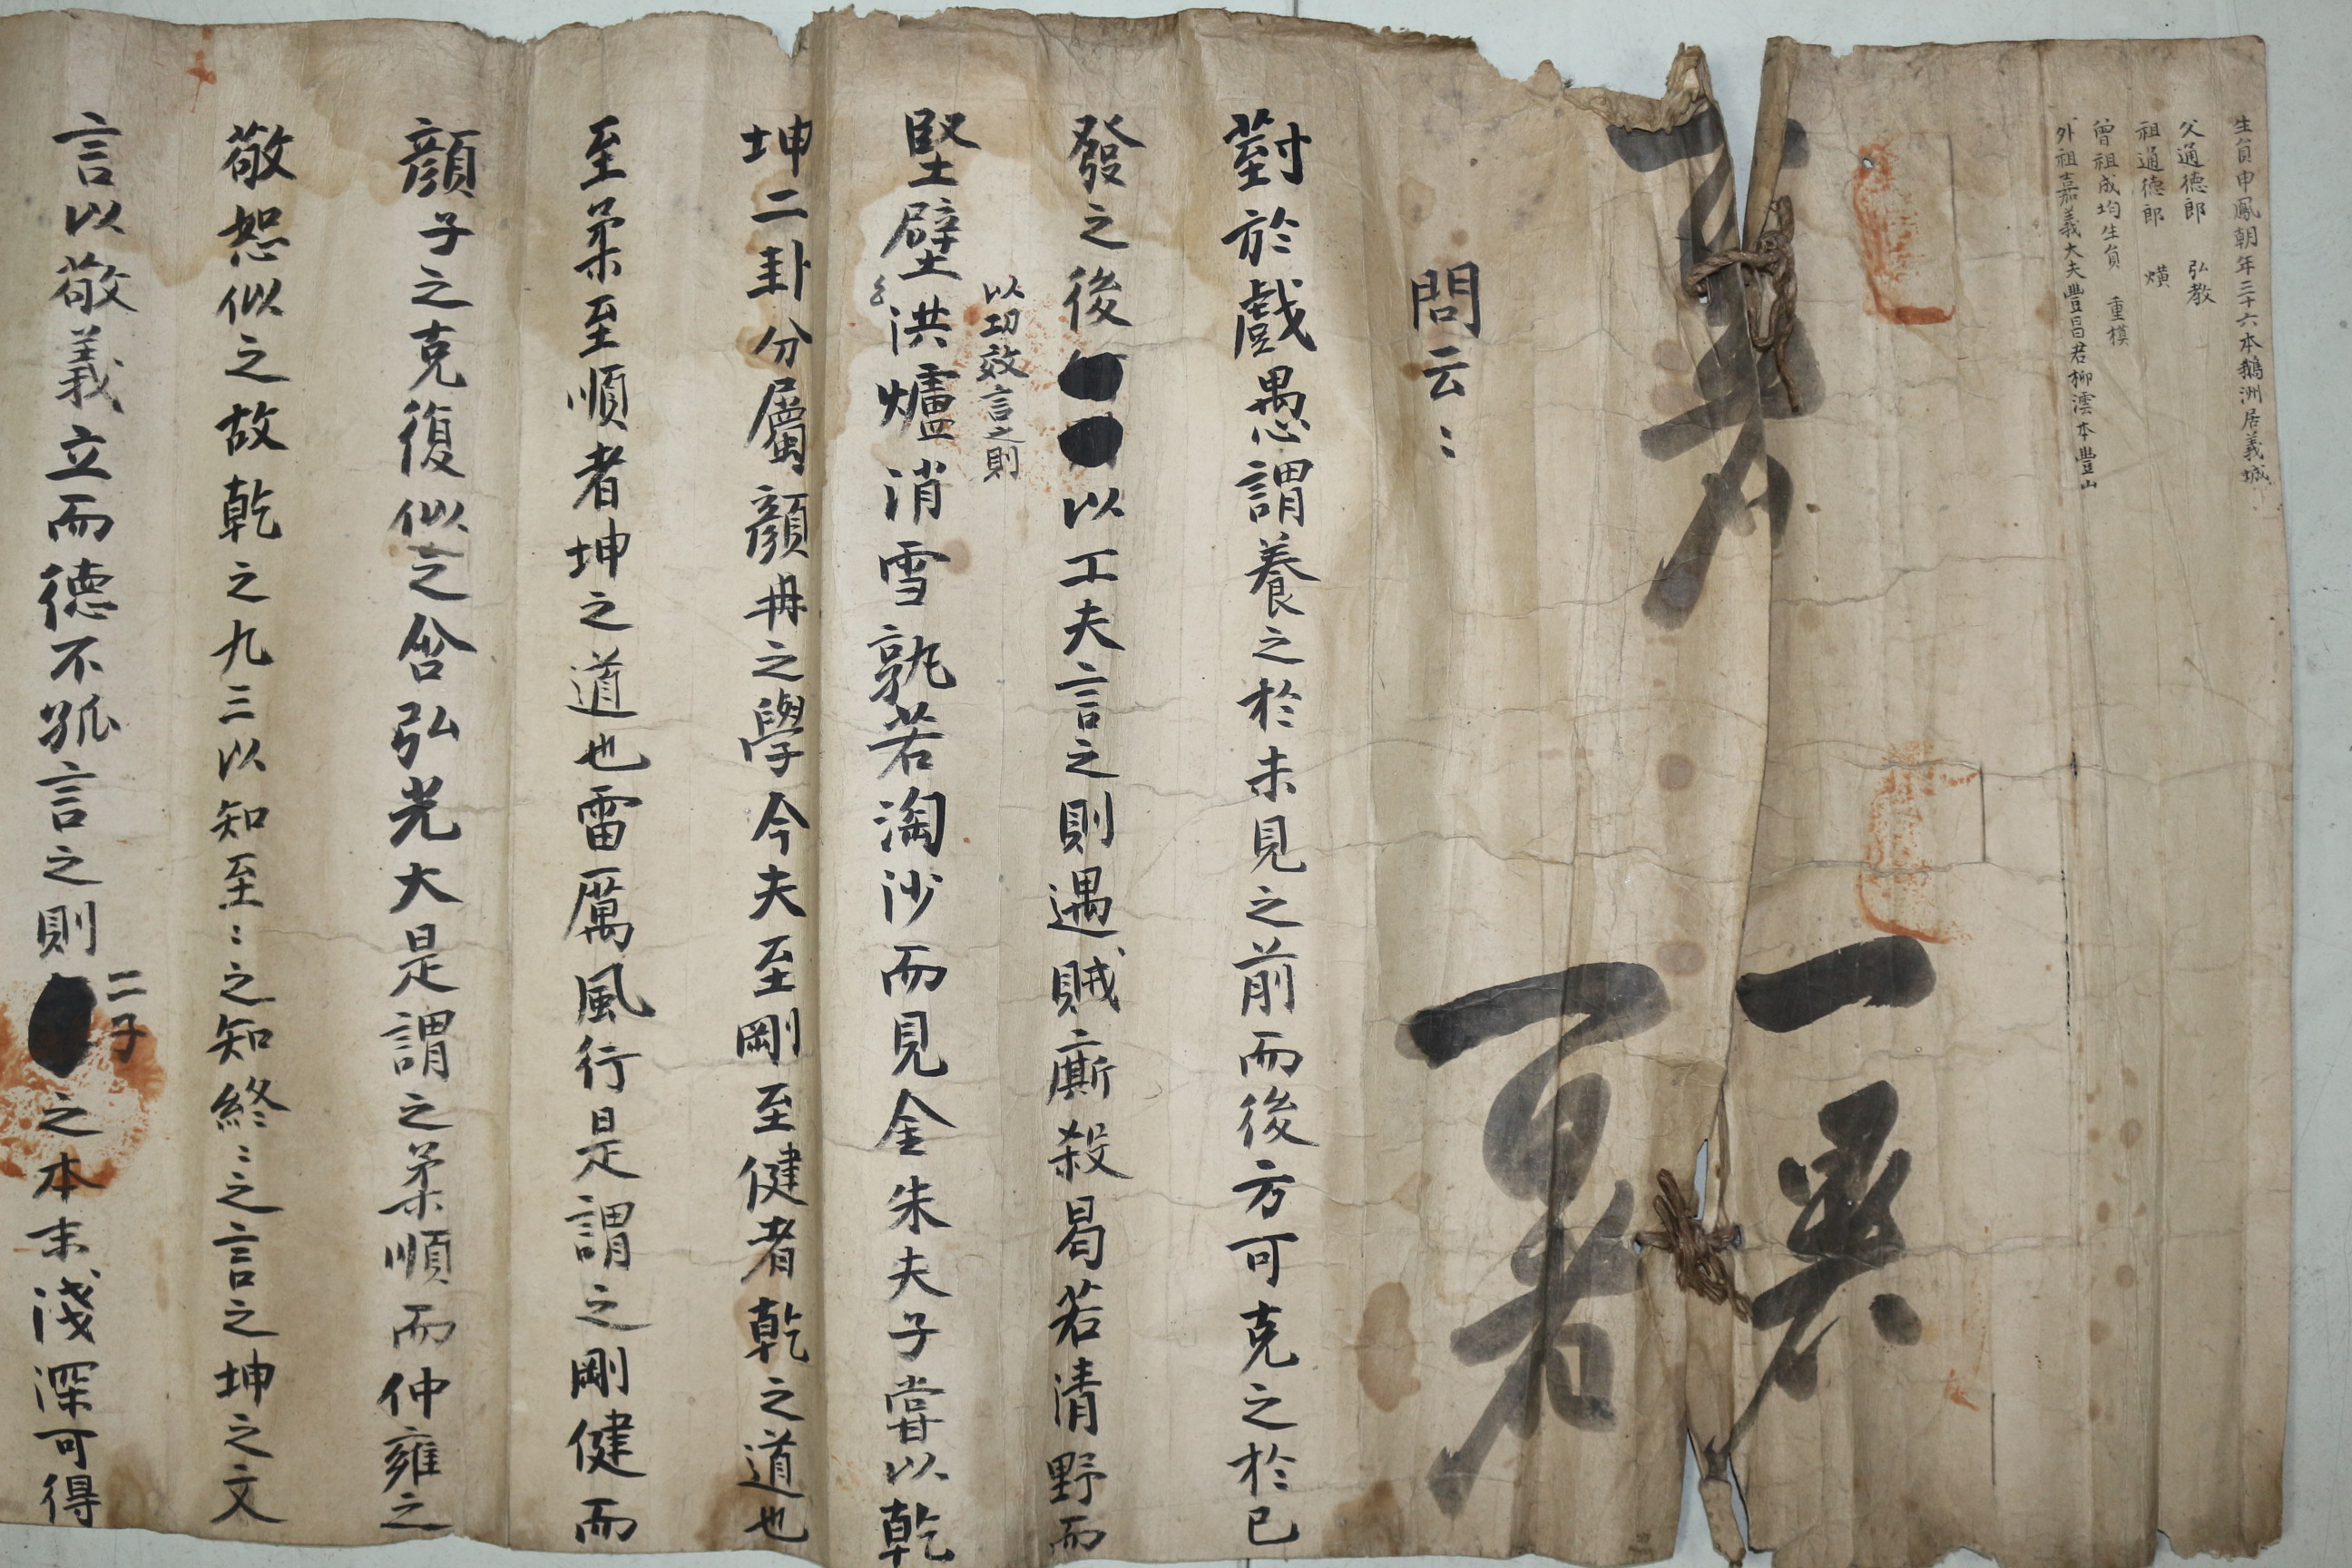 生員申鳳朝年三十六本鵝洲居義城
父通德郎 弘教
祖通德郎 熿
曾祖成均生員 重模
外祖嘉義大夫豐昌君柳澐本豐山
問云〻
對於戲愚謂養之於未見之前而後方可克之於已
發之後以工夫言之則遇賊廝殺曷若清野而
以功效言之則
堅壁洪爐消雪孰若淘沙而見金朱夫子嘗以乾
坤二卦分屬顔冉之學今夫至剛至健者乾之道也
至柔至順者坤之道也雷厲風行是謂之剛健而
顔子之克復似之含弘光大是謂之柔順而仲雍之
敬恕似之故乾之九三以知至〻之知終〻之言之坤之文
二子
言以敬義立而德不孤言之則之本末淺深可得